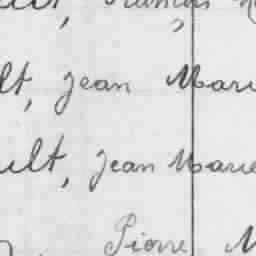 lt, Jean Marie
ult, Jean Marie
Pierre M